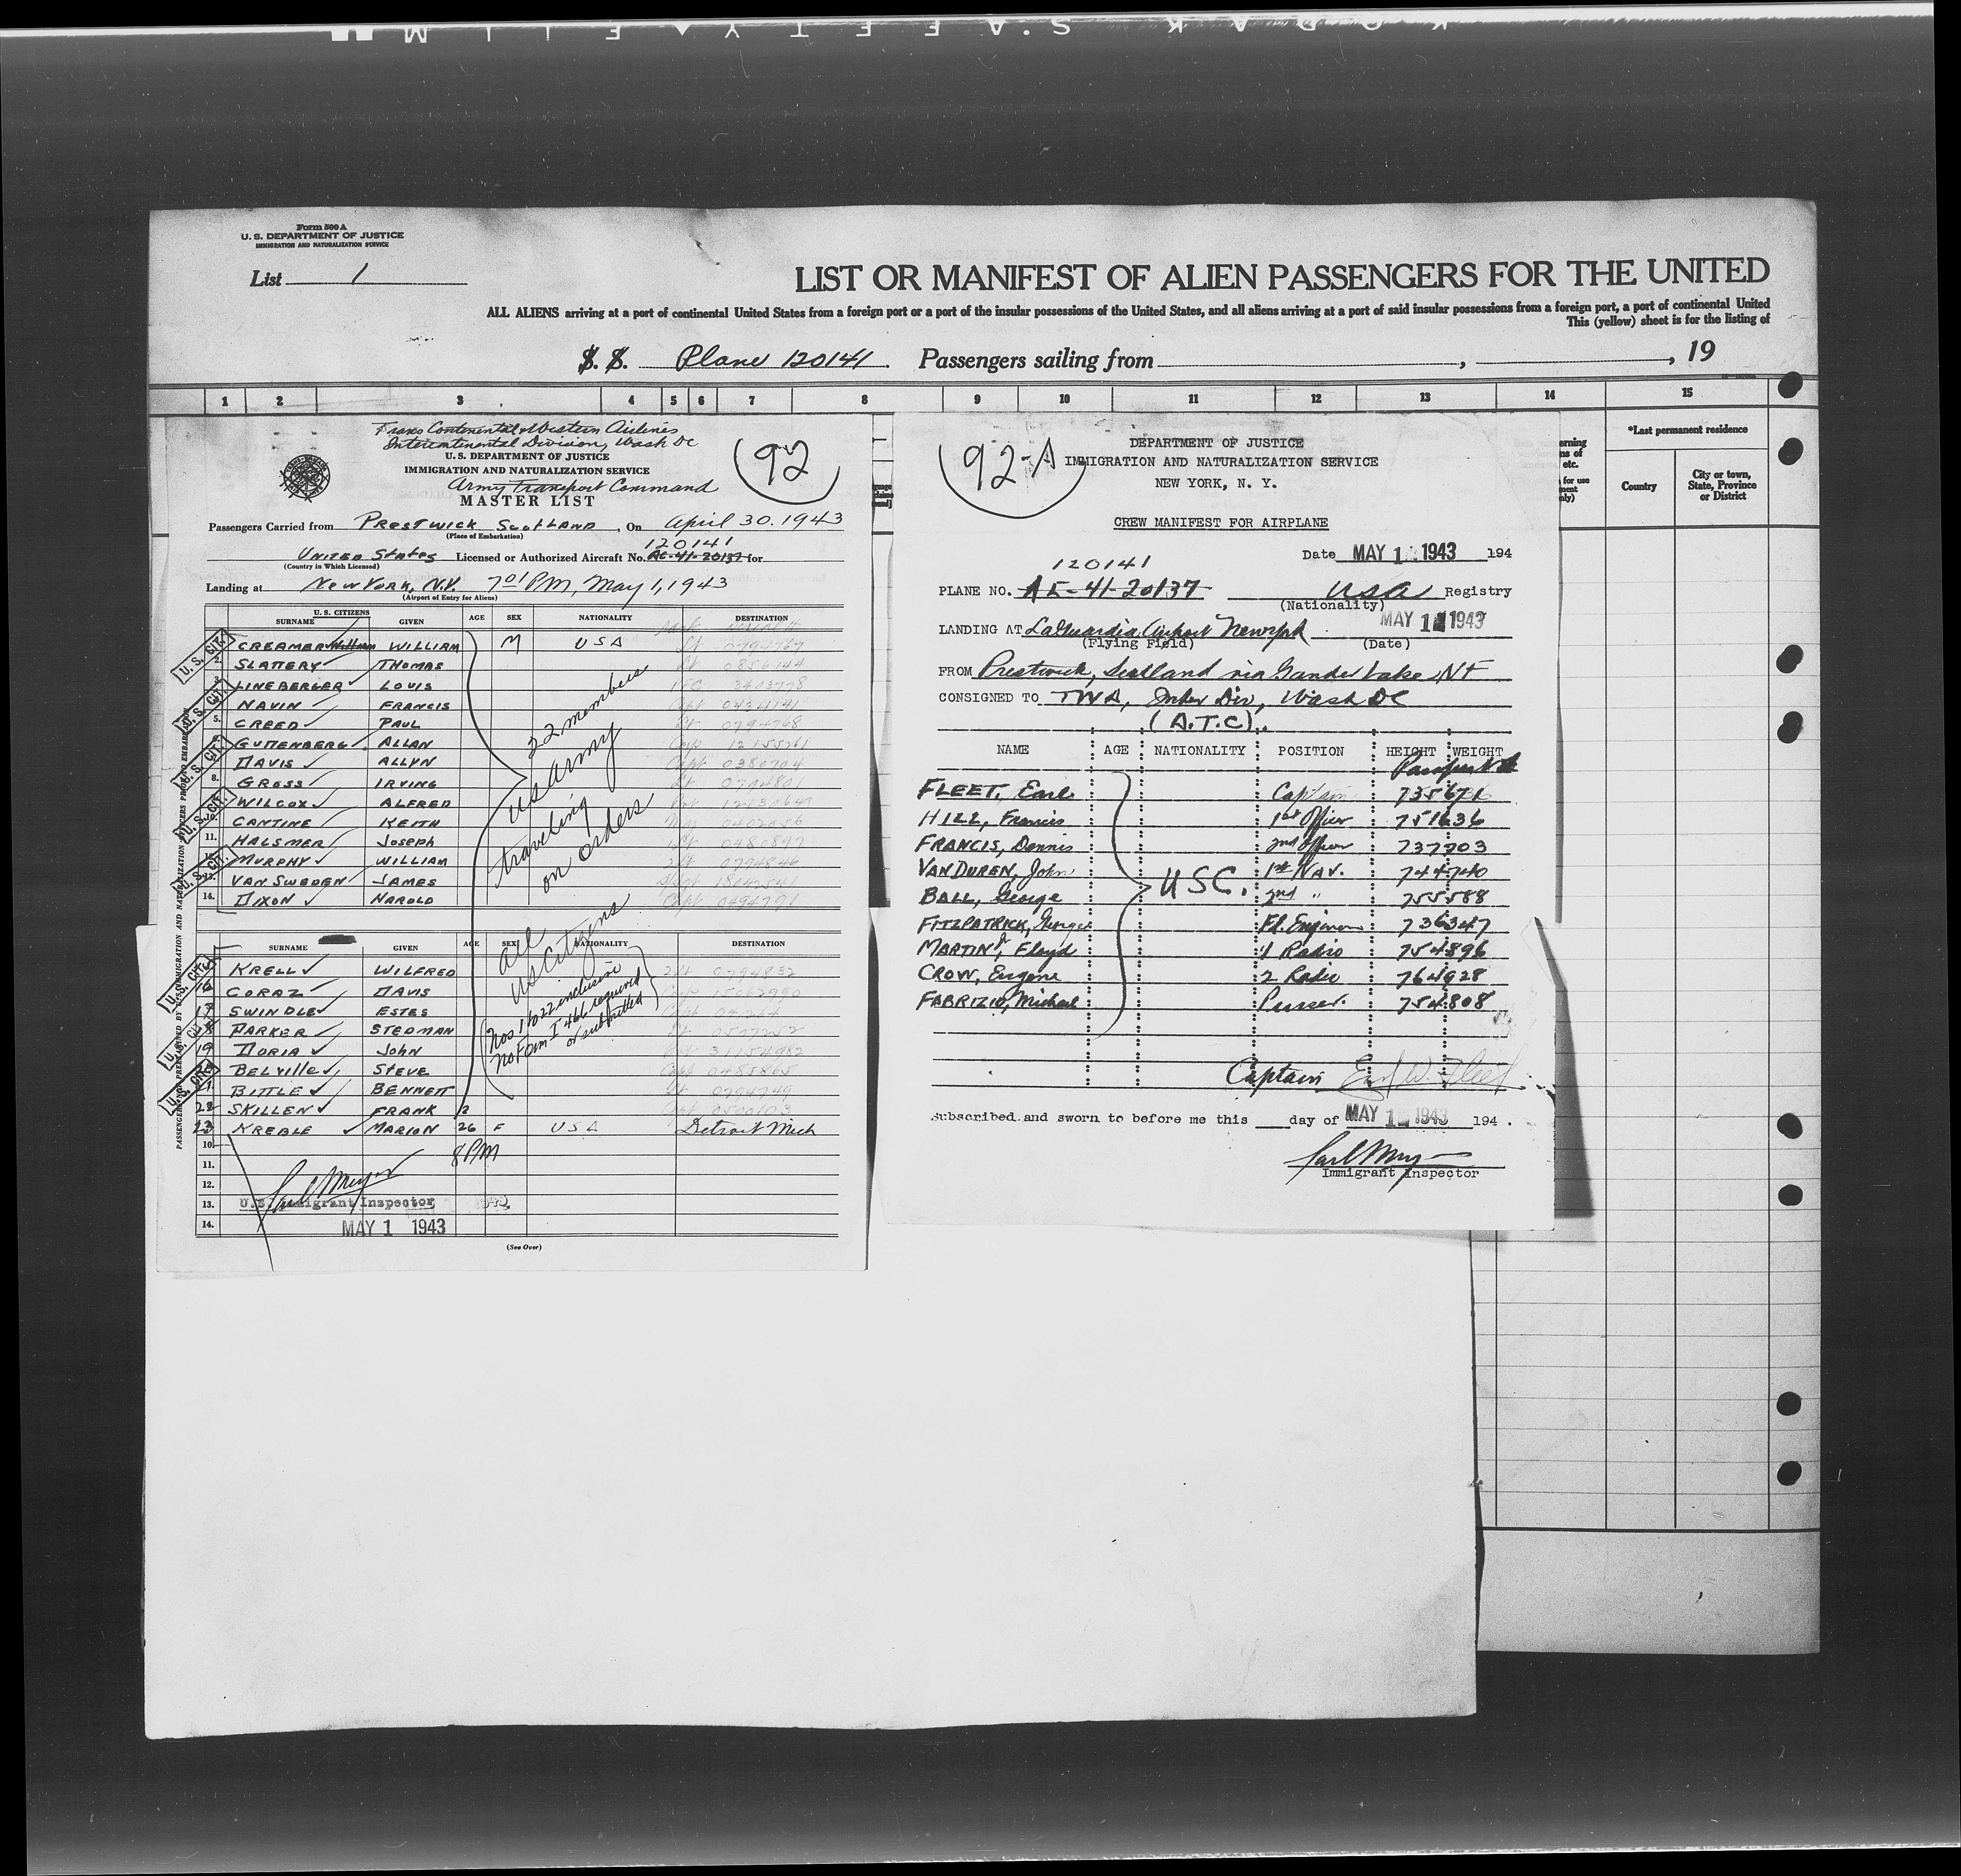 KODAK SAFETY FILM
Form 500 A
U. S. DEPARTMENT OF JUSTICE
IMMIGRATION AND NATURALIZATION SERVICE
List 1
LIST OR MANIFEST OF ALIEN PASSENGERS FOR THE UNITED
ALL ALIENS arriving at a port of continental United States from a foreign port or a port of the insular possessions of the United States, and all aliens arriving at a port of said insular possessions from a foreign port, a port of continental United
This (yellow) sheet is for the listing of
S. S. Plane 120141. Passengers sailing from , , 19
1 2 3 4 5 6 7 8 9 10 11 12 13 14 15
Trans Continental & Western Airlines
Intercontinental Division, Wash DC
U. S. DEPARTMENT OF JUSTICE
IMMIGRATION AND NATURALIZATION SERVICE
Army Transport Command
MASTER LIST
92
Passengers Carried from PRESTWICK SCOTLAND, On April 30. 1943
(Place of Embarkation)
120141
United States Licensed or Authorized Aircraft No. AC-41-20137 for
(Country in Which Licensed)
Landing at New York, N.Y. 7 01 PM, May 1, 1943
(Airport of Entry for Aliens)
U. S. CITIZENS
SURNAME GIVEN AGE SEX NATIONALITY DESTINATION
CREAMER William WILLIAM M USA Lt 0794767
2. SLATTERY THOMAS Lt 0856144
3. LINEBERGER LOUIS PFC
NAVIN FRANCIS Capt
5. CREED PAUL Lt 0794768
GUTTENBERG ALLAN Cap
DAVIS ALLYN Capt 0380704
8. GROSS IRVING Lt
WILCOX ALFRED
10. CANTINE KEITH Maj 0402056
11. HALSMER Joseph 0480897
MURPHY WILLIAM 2Lt 0794846
13. VAN SWEDEN JAMES
14. DIXON HAROLD Capt 0494791
22 members
US Army
traveling
on orders
all
US Citizens
SURNAME GIVEN AGE SEX NATIONALITY DESTINATION
KRELL WILFRED 2Lt 0794832
16 CORAZ DAVIS
17 SWINDLE ESTES Capt
18 PARKER STEDMAN Lt
19 DORIA John
BELVILLE STEVE Capt 0485865
21. BITTLE BENNETT Lt 0794749
22 SKILLEN FRANK Capt 0500103
23 KREBLE MARION 26 F USA Detroit Mich
Nos 1 to 22 inclusive
No Form I 466 required
or submitted
10.
11.
12.
13.
14.
8 PM
U.S. Immigrant Inspector
MAY 1 1943
(See Over)
U. S. CIT.
U. S. CIT.
U. S. CIT.
U. S. CIT.
U. S. CIT.
U. S. CIT.
U. S. CIT.
U. S. CIT.
92-A
DEPARTMENT OF JUSTICE
IMMIGRATION AND NATURALIZATION SERVICE
NEW YORK, N. Y.
CREW MANIFEST FOR AIRPLANE
Date MAY 1 1943 194
120141
PLANE NO. AC-41-20137 USA Registry
(Nationality)
LANDING AT LaGuardia Airport New York MAY 1 1943
(Flying Field) (Date)
FROM Prestwick, Scotland via Gander Lake, NF
CONSIGNED TO TWA, Inter Div, Wash DC
(A.T.C).
NAME AGE NATIONALITY POSITION HEIGHT WEIGHT
Passport No
FLEET, Earl Captain 735671
HILL, Francis 1st Officer 751636
FRANCIS, Dennis 2nd Officer 737703
VAN DUREN, John 1st Nav. 744740
BALL, George 2nd " 755588
FITZPATRICK, George Fl. Engineer 736347
MARTIN Jr, Floyd 1 Radio 754896
CROW, Eugene 2 Radio 764928
FABRIZIO, Michael Purser. 754808
USC.
Captain Earl W. Fleet
Subscribed and sworn to before me this day of MAY 1 1943 194 .
Immigrant Inspector
*Last permanent residence
Country
City or town,
State, Province
or District